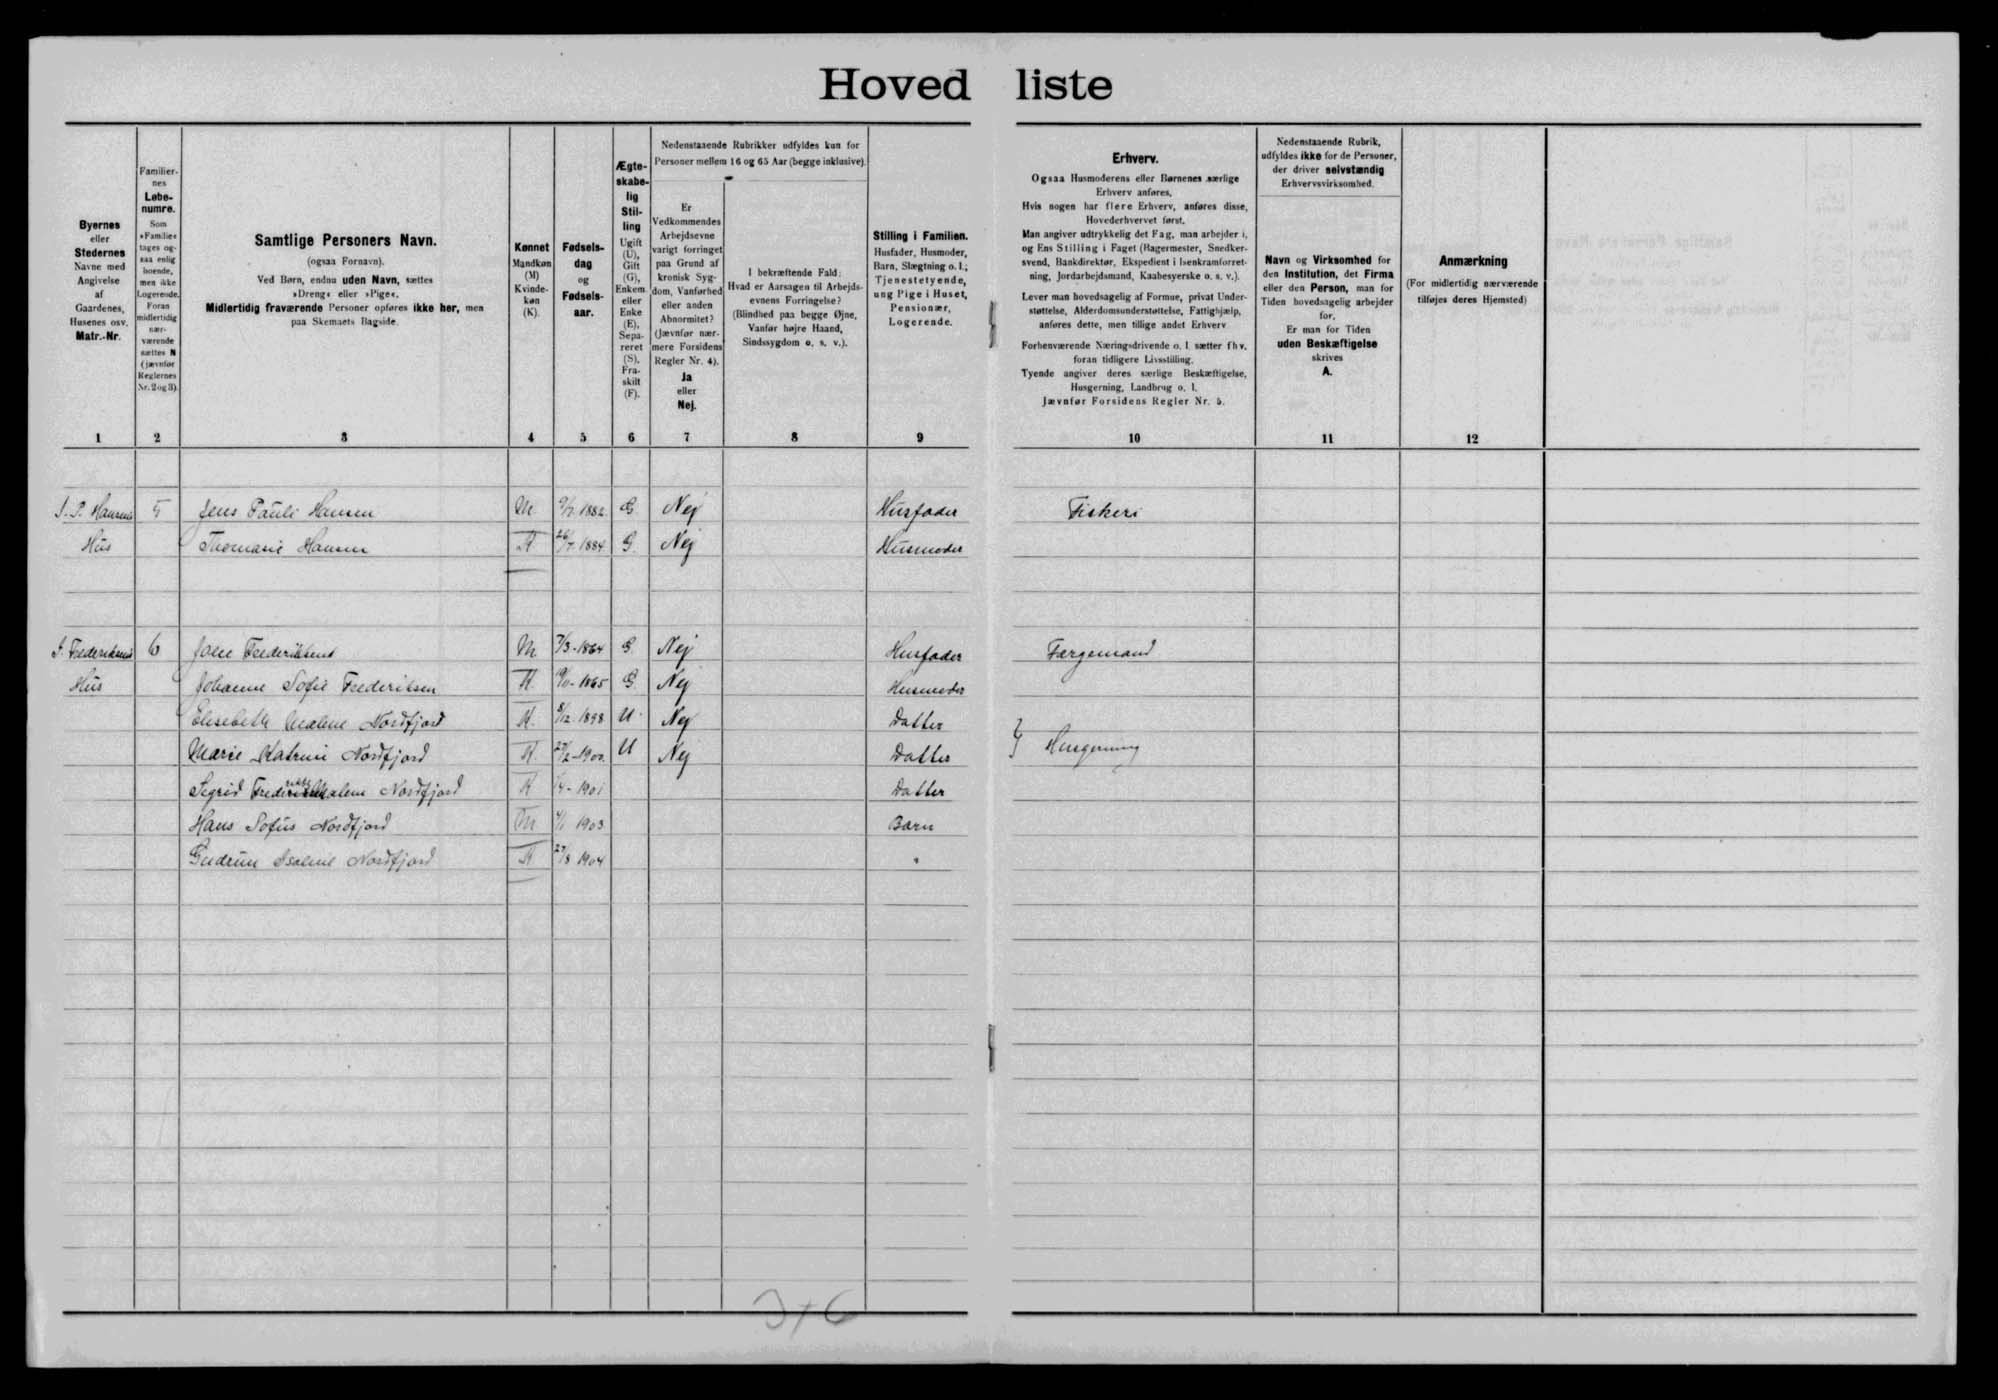 Hovedliste
Byernes
eller
Stedernes
Navne med
Angivelse
af
Gaardenes,
Husenes osv.
Matr.-Nr.
Familier-
nes
Løbe-
numre.
Som
»Familie«
tages og-
saa enlig
boende,
men ikke
Logerende.
Foran
midlertidig
nær-
værende
sættes N
(jævnfør
Reglernes
Nr. 2 og 3).
Samtlige Personers Navn.
(ogsaa Fornavn).
Ved Børn, endnu uden Navn, sættes
»Dreng« eller »Pige«.
Midlertidig fraværende Personer opføres ikke her, men
paa Skemaets Bagside.
Kønnet
Mandkøn
(M)
Kvinde-
køn
(K).
Fødsels-
dag
og
Fødsels-
aar.
Ægte-
skabe-
lig
Stil-
ling
Ugift
(U),
Gift
(G),
Enkem.
eller
Enke
(E),
Sepa-
reret
(S),
Fra-
skilt
(F).
Nedenstaaende Rubrikker udfyldes kun for
Personer mellem 16 og 65 Aar (begge inklusive).
Er
Vedkommendes
Arbejdsevne
varigt forringet
paa Grund af
kronisk Syg-
dom, Vanførhed
eller anden
Abnormitet?
(Jævnfør nær-
mere Forsidens
Regler Nr. 4).
Ja
eller
Nej.
I bekræftende Fald:
Hvad er Aarsagen til Arbejds-
evnens Forringelse?
(Blindhed paa begge Øjne,
Vanfør højre Haand,
Sindssygdom o. s. v.).
Stilling i Familien.
Husfader, Husmoder,
Barn, Slægtning o. l.;
Tjenestetyende,
ung Pige i Huset,
Pensionær,
Logerende.
Erhverv.
Ogsaa Husmoderens eller Børnenes særlige
Erhverv anføres.
Hvis nogen har flere Erhverv, anføres disse,
Hovederhvervet først.
Man angiver udtrykkelig det Fag, man arbejder i,
og Ens Stilling i Faget (Bagermester, Snedker-
svend, Bankdirektør, Ekspedient i Isenkramforret-
ning, Jordarbejdsmand, Kaabesyerske o. s. v.).
Lever man hovedsagelig af Formue, privat Under-
støttelse, Alderdomsunderstøttelse, Fattighjælp,
anføres dette, men tillige andet Erhverv
Forhenværende Næringsdrivende o. l. sætter fhv.
foran tidligere Livsstilling.
Tyende angiver deres særlige Beskæftigelse,
Husgerning, Landbrug o. l.
Jævnfør Forsidens Regler Nr. 5.
Nedenstaaende Rubrik,
udfyldes ikke for de Personer,
der driver selvstændig
Erhvervsvirksomhed.
Navn og Virksomhed for
den Institution, det Firma
eller den Person, man for
Tiden hovedsagelig arbejder
for.
Er man for Tiden
uden Beskæftigelse
skrives
A.
Anmærkning
(For midlertidig nærværende
tilføjes deres Hjemsted)
1 2 3 4 5 6 7 8 9 10 11 12
J. P. Hansens 5 Jens Pauli Hansen M. 9/7 1882 G Nej Husfader Fiskeri
Hus Thomasie Hansen K 26/7 1884 G. Nej Husmoder
J. Frederiksens 6 Joen Frederiksen M 7/3-1864 G. Nej Husfader Færgemand
Hus Johanne Sofie Frederiksen K. 19/11-1865 G. Nej Husmoder
Elisebeth Malene Nordfjord K. 8/12-1898 U. Nej Datter
Marie Katrine Nordfjord K. 27/2-1900. U Nej Datter Husgerning
Sigrid Malene Nordfjord K 1/4-1901 Datter
Hans Sofus Nordfjord M 4/1 1903 Barn
Gudrun Nordfjord K 27/8 1904 "
3+6